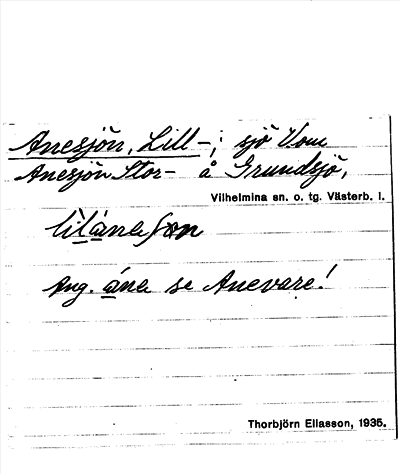 Anesjön, Lill-; sjö Vom
Anesjön Stor- å Grundsjö,
Vilhelmina sn. o. tg. Västerb. l.
Ang. ána se Anevare!
Thorbjörn Eliasson, 1935.